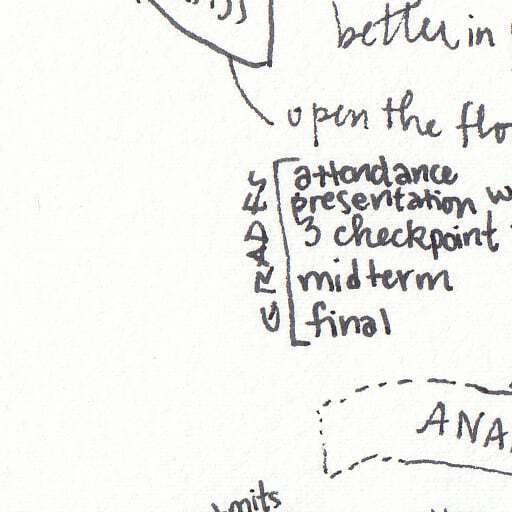 better in
open the flo
GRADES
attendance
presentation w
3 checkpoint
midterm
final
ANA
mits